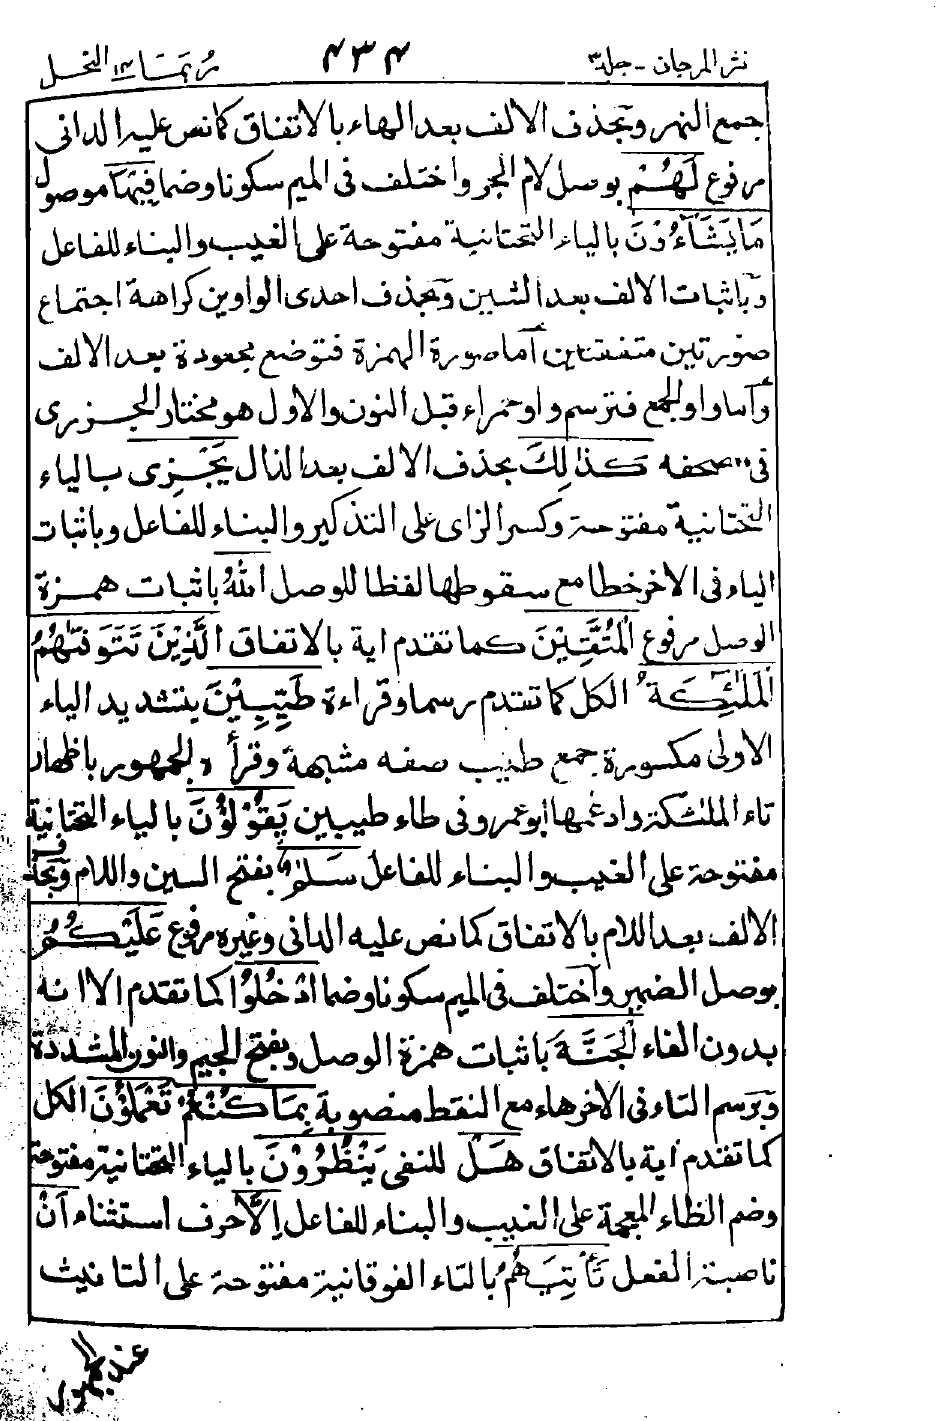 نثر المرجان - جلد ٣
٤٣٤
ربما ١٤ النحل
جمع النهر وبحذف الالف بعد الهاء بالاتفاق كما نص عليه الدانى
مرفوع لَهُمْ بوصل لام الجر واختلف فى الميم سكونا وضما فِيْهَا موصول
مَا يَشَآءُوْنَ بالياء التحتانية مفتوحة على الغيب والبناء للفاعل
وباثبات الالف بعد الشين وبحذف احدى الواوين كراهة اجتماع
صورتين متفقتين اما صورة الهمزة فتوضع مجعودة بعد الالف
واما واو الجمع فترسم واو حمراء قبل النون والاول هو مختار الجزرى
فى مصحفه كَذٰلِكَ بحذف الالف بعد الذال يَجْزِى بالياء
التحتانية مفتوحة وكسر الزاى على التذكير والبناء للفاعل وباثبات
الياء فى الاخر خطا مع سقوطها لفظا للوصل اللّٰهُ باثبات همزة
الوصل مرفوع الْمُتَّقِيْنَ كما تقدم اية بالاتفاق الَّذِيْنَ تَتَوَفّٰىهُمُ
الْمَلٰٓئِكَةُ الكل كما تقدم رسما وقراءة طَيِّبِيْنَ بتشديد الياء
الاولى مكسورة جمع طيب صفه مشبهة وقرأ الجمهور باظهار
تاء الملئكة وادغمها ابو عمرو فى طاء طيبين يَقُوْلُوْنَ بالياء التحتانية
مفتوحة على الغيب والبناء للفاعل سَلٰمٌ بفتح السين واللام وبحذف
الالف بعد اللام بالاتفاق كما نص عليه الدانى وغيره مرفوع عَلَيْكُمُ
بوصل الضمير واختلف فى الميم سكونا وضما ادْخُلُوْا كما تقدم الا انه
بدون الفاء الْجَنَّةَ باثبات همزة الوصل وبفتح الجيم والنون المشددة
وبرسم التاء فى الاخر هاء مع النقط منصوبة بِمَا كُنْتُمْ تَعْمَلُوْنَ الكل
كما تقدم اية بالاتفاق هَلْ للنفى يَنْظُرُوْنَ بالياء التحتانية مفتوحة
وضم الظاء المعجمة على الغيب والبناء للفاعل اِلَّا حرف استثناء اَنْ
ناصبة الفعل تَأْتِيَهُمُ بالتاء الفوقانية مفتوحة على التانيث
عند الجمهور